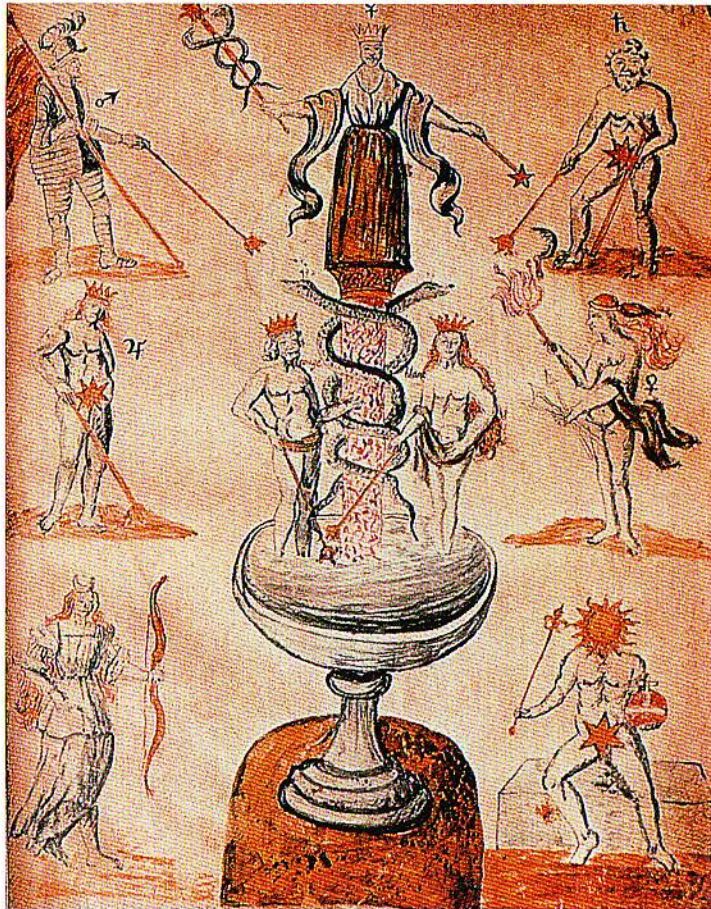 ☿
♄
♂
♃
♀